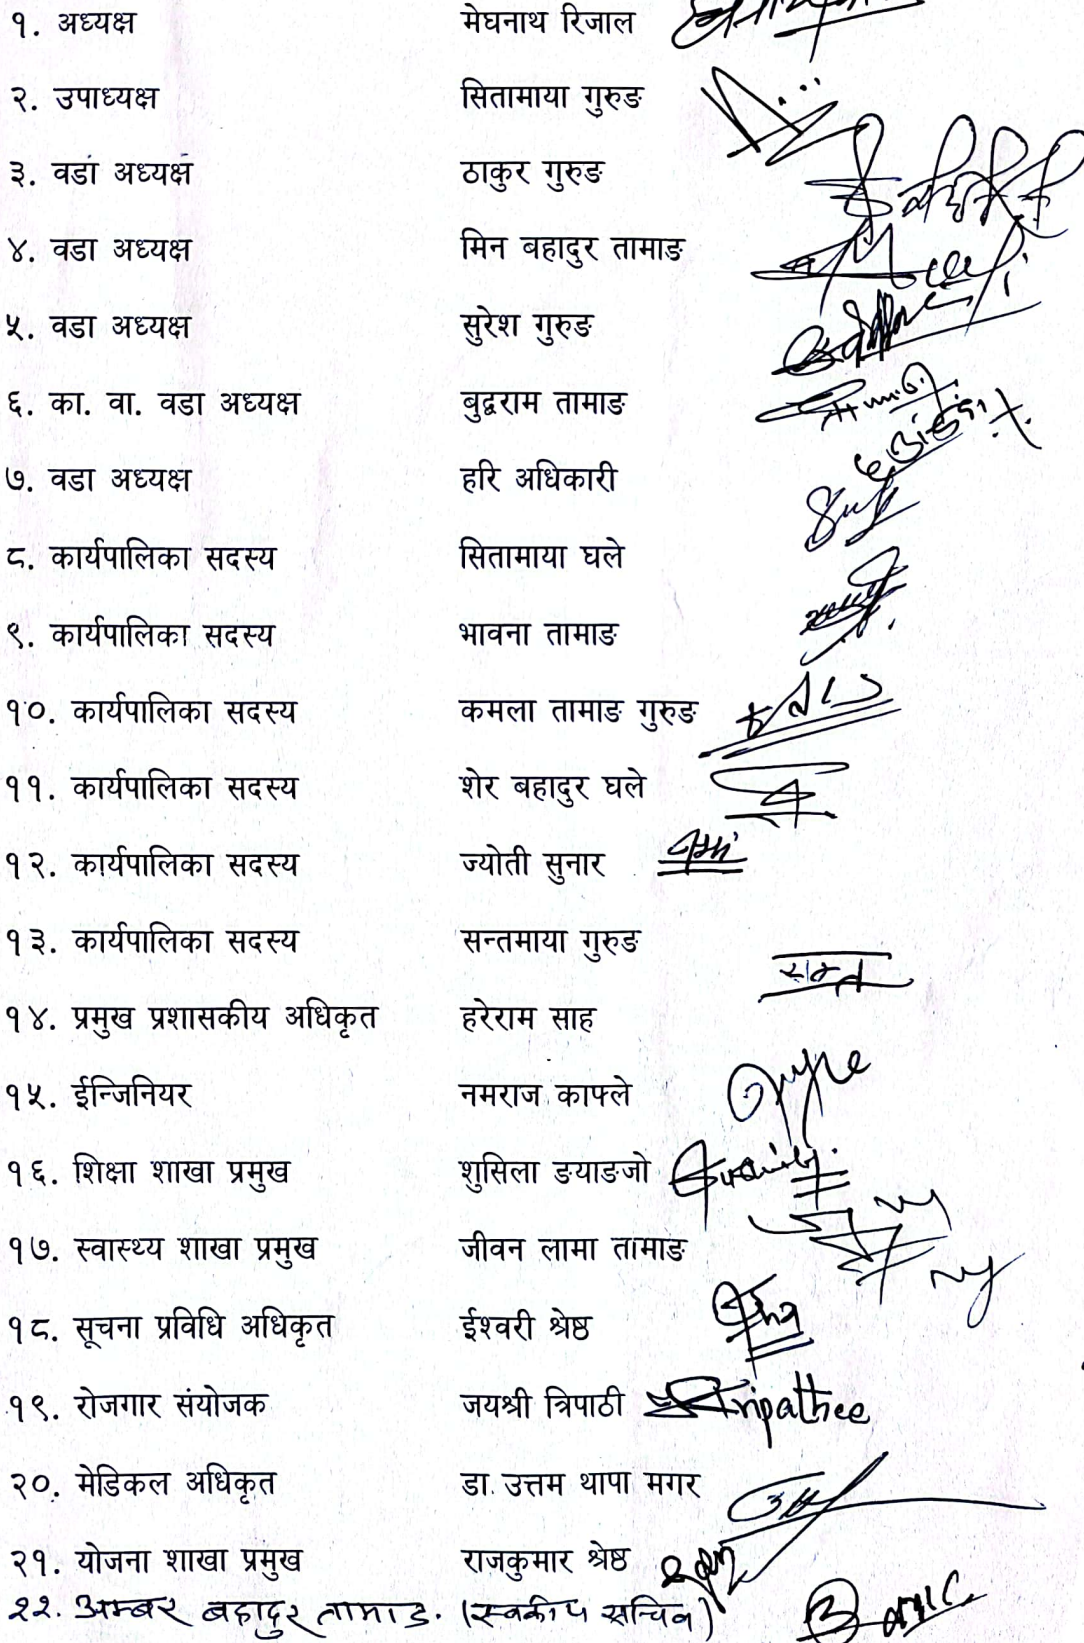 १. अध्यक्ष मेघनाथ रिजाल
२. उपाध्यक्ष सितामाया गुरुङ
३. वडा अध्यक्ष ठाकुर गुरुङ
४. वडा अध्यक्ष मिन बहादुर तामाङ
५. वडा अध्यक्ष सुरेश गुरुङ
६. का. वा. वडा अध्यक्ष बुद्वराम तामाङ
७. वडा अध्यक्ष हरि अधिकारी
८. कार्यपालिका सदस्य सितामाया घले
९. कार्यपालिका सदस्य भावना तामाङ
१०. कार्यपालिका सदस्य कमला तामाङ गुरुङ
११. कार्यपालिका सदस्य शेर बहादुर घले
१२. कार्यपालिका सदस्य ज्योती सुनार
१३. कार्यपालिका सदस्य सन्तमाया गुरुङ सन्त
१४. प्रमुख प्रशासकीय अधिकृत हरेराम साह
१५. ईन्जिनियर नमराज काफ्ले
१६. शिक्षा शाखा प्रमुख शुसिला ङयाङजो
१७. स्वास्थ्य शाखा प्रमुख जीवन लामा तामाङ
१८. सूचना प्रविधि अधिकृत ईश्वरी श्रेष्ठ
१९. रोजगार संयोजक जयश्री त्रिपाठी Tripathee
२०. मेडिकल अधिकृत डा. उत्तम थापा मगर
२१. योजना शाखा प्रमुख राजकुमार श्रेष्ठ
२२. अम्बर बहादुर तामाङ. (स्वकीय सचिव)